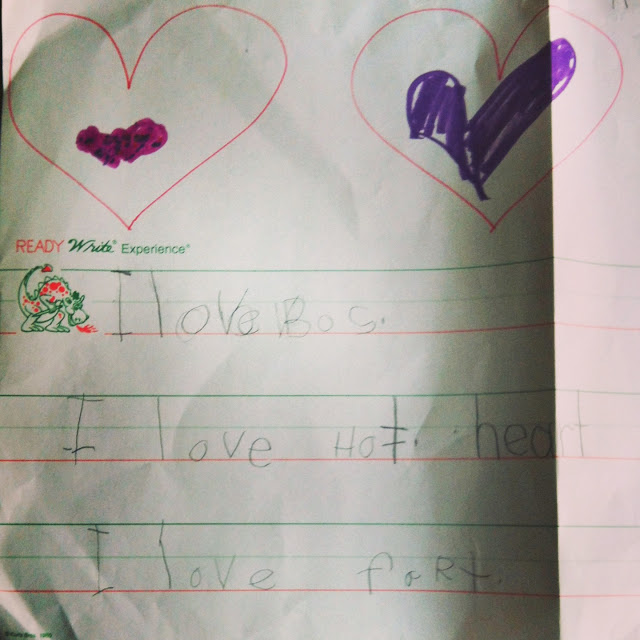 READY Write® Experience®
I love Bos.
I love Hot. heart
I love fart.